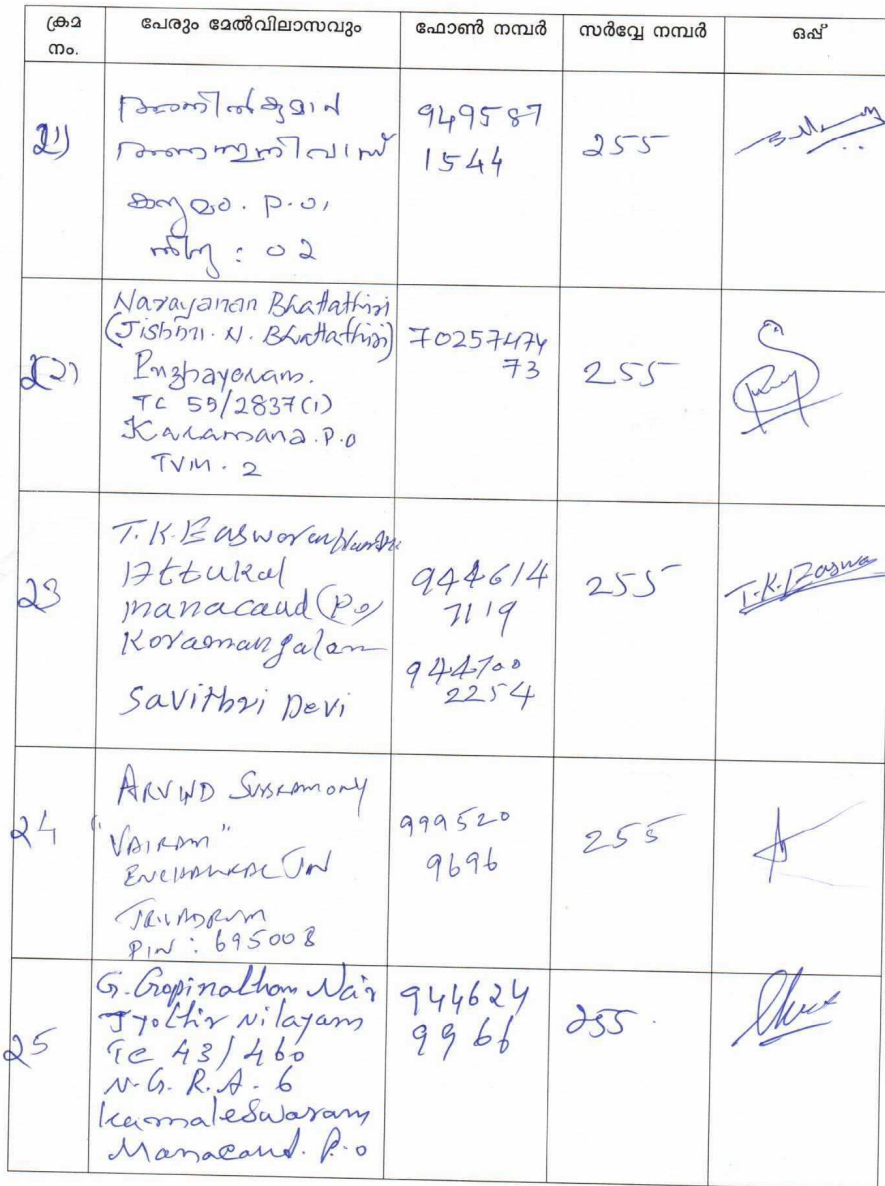 ക്രമ നം. പേരും മേൽവിലാസവും ഫോൺ നമ്പർ സർവ്വേ നമ്പർ ഒപ്പ്
21)
അനിൽകുമാർ
കരമന. P.O,
: 02
949587
1544
255
22)
Narayanan Bhattathiri
(Jishnu. N. Bhattathiri)
Puzhayoram.
TC 55/2837(1)
Karamana. P.O
TVM. 2
70257474
73
255
23
T.K. Easwaran
Attukal
manacaud (P.O)
Koramangalam
Savithri Devi
944614
7119
944700
2254
255
T.K. Easwa
24
ARVIND SUBRAMONY
"VAIRAM"
ENCHAKKAL JN
TRIVANDRUM
PIN: 695008
999520
9696
255
25
G. Gopinathan Nair
Jyothir Nilayam
TC 43/460
N.G.R.A. 6
Kamaleswaram
Manacaud. P.O
944624
9966
255.